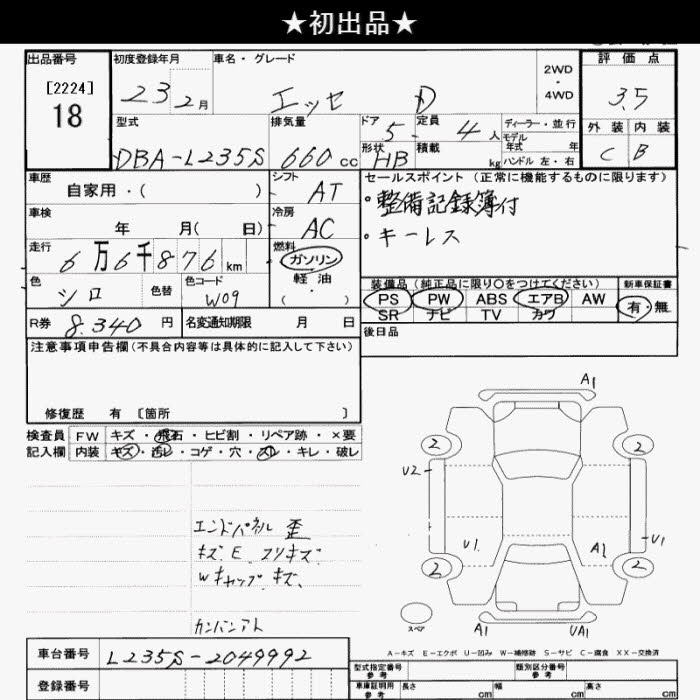 ★初出品★
出品番号
[2224]
18
初度登録年月
23 2月
車名・グレード
エッセ D
2WD
・
4WD
評価点
3.5
外装 内装
C B
型式
DBA-L235S
排気量
660 cc
ドア
5
形状
HB
定員
4 人
積載
kg
ディーラー・並行
モデル
年式 年
ハンドル 左・右
車歴
自家用・( )
シフト
AT
車検
年 月( 日)
冷房
AC
走行
6万6千876 km
燃料
ガソリン
軽油
( )
色
シロ
色替
色コード
W09
R券 8.340 円
名変通知期限 月 日
セールスポイント(正常に機能するものに限ります)
・整備記録簿付
・キーレス
装備品(純正品に限り〇をつけてください)
新車保証書
PS PW ABS エアB AW
SR ナビ TV カワ
有・無
後日品
注意事項申告欄(不具合内容等は具体的に記入して下さい)
修復歴 有 [箇所 ]
検査員
記入欄
FW キズ・飛石・ヒビ割・リペア跡・×要
内装 キズ・汚レ・コゲ・穴・スレ・キレ・破レ
エンドパネル 歪
キズ E スリキズ
Wキャップ キズ、
カンバンアト
A1
2 2
U2
U1 A1 U1
2 2
スペア
A1 UA1
A-キズ E-エクボ U-凹み W-補修跡 S-サビ C-腐食 XX-交換済
車台番号 L235S-2049992
登録番号
型式指定番号
参考
類別区分番号
参考
車庫証明用
参考
長さ cm 幅 cm 高さ cm